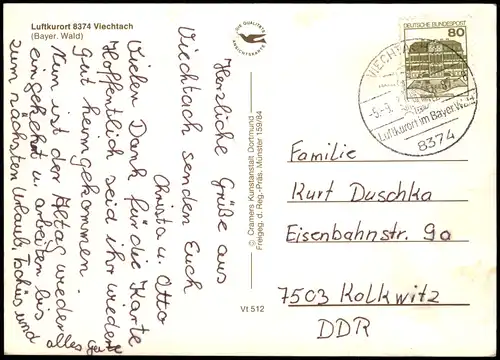 Luftkurort 8374 Viechtach
(Bayer. Wald)
DIE QUALITÄTS
ANSICHTSKARTE
DEUTSCHE BUNDESPOST
80
VIECHTACH
Luftkurort im Bayer. Wald
8374
Herzliche Grüße aus
Viechtach senden Euch
Christa u. Otto
Vielen Dank für die Karte
Hoffentlich seid ihr wieder
gut heimgekommen.
Nun ist der Alltag wieder
eingekehrt u. arbeiten bis
zum nächsten Urlaub, Tschüs und
alles gute
© Cramers Kunstanstalt Dortmund
Freigeg. d. Reg.-Präs. Münster 159/84
Vt 512
Familie
Kurt Duschka
Eisenbahnstr. 9a
7503 Kolkwitz
DDR